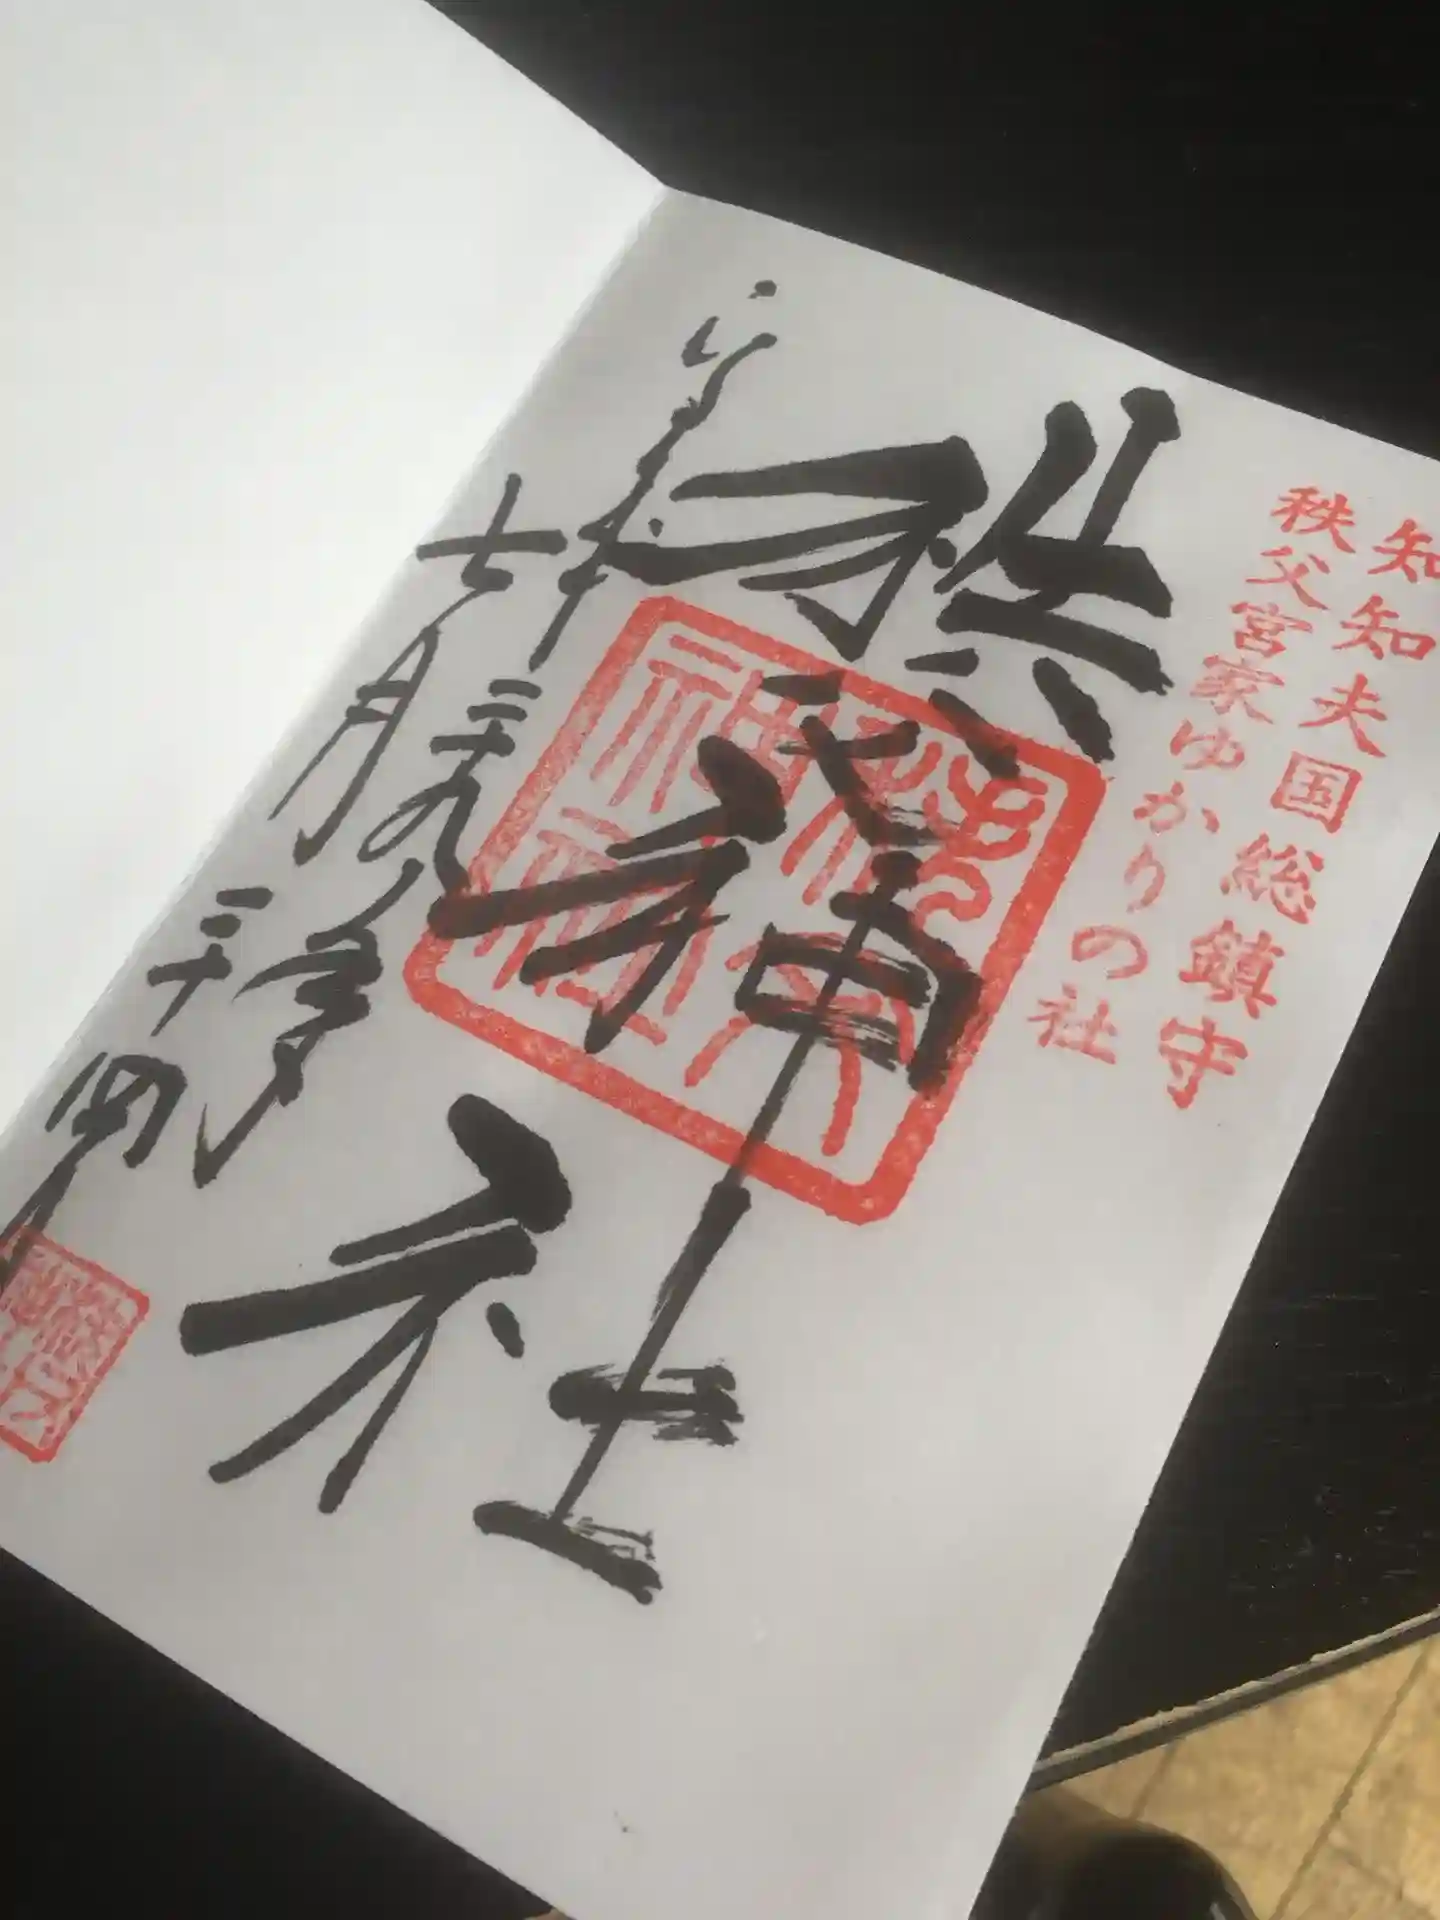 知知夫国総鎮守
秩父宮家ゆかりの社
秩父神社
秩父神社
平成二十九年
七月二十四日